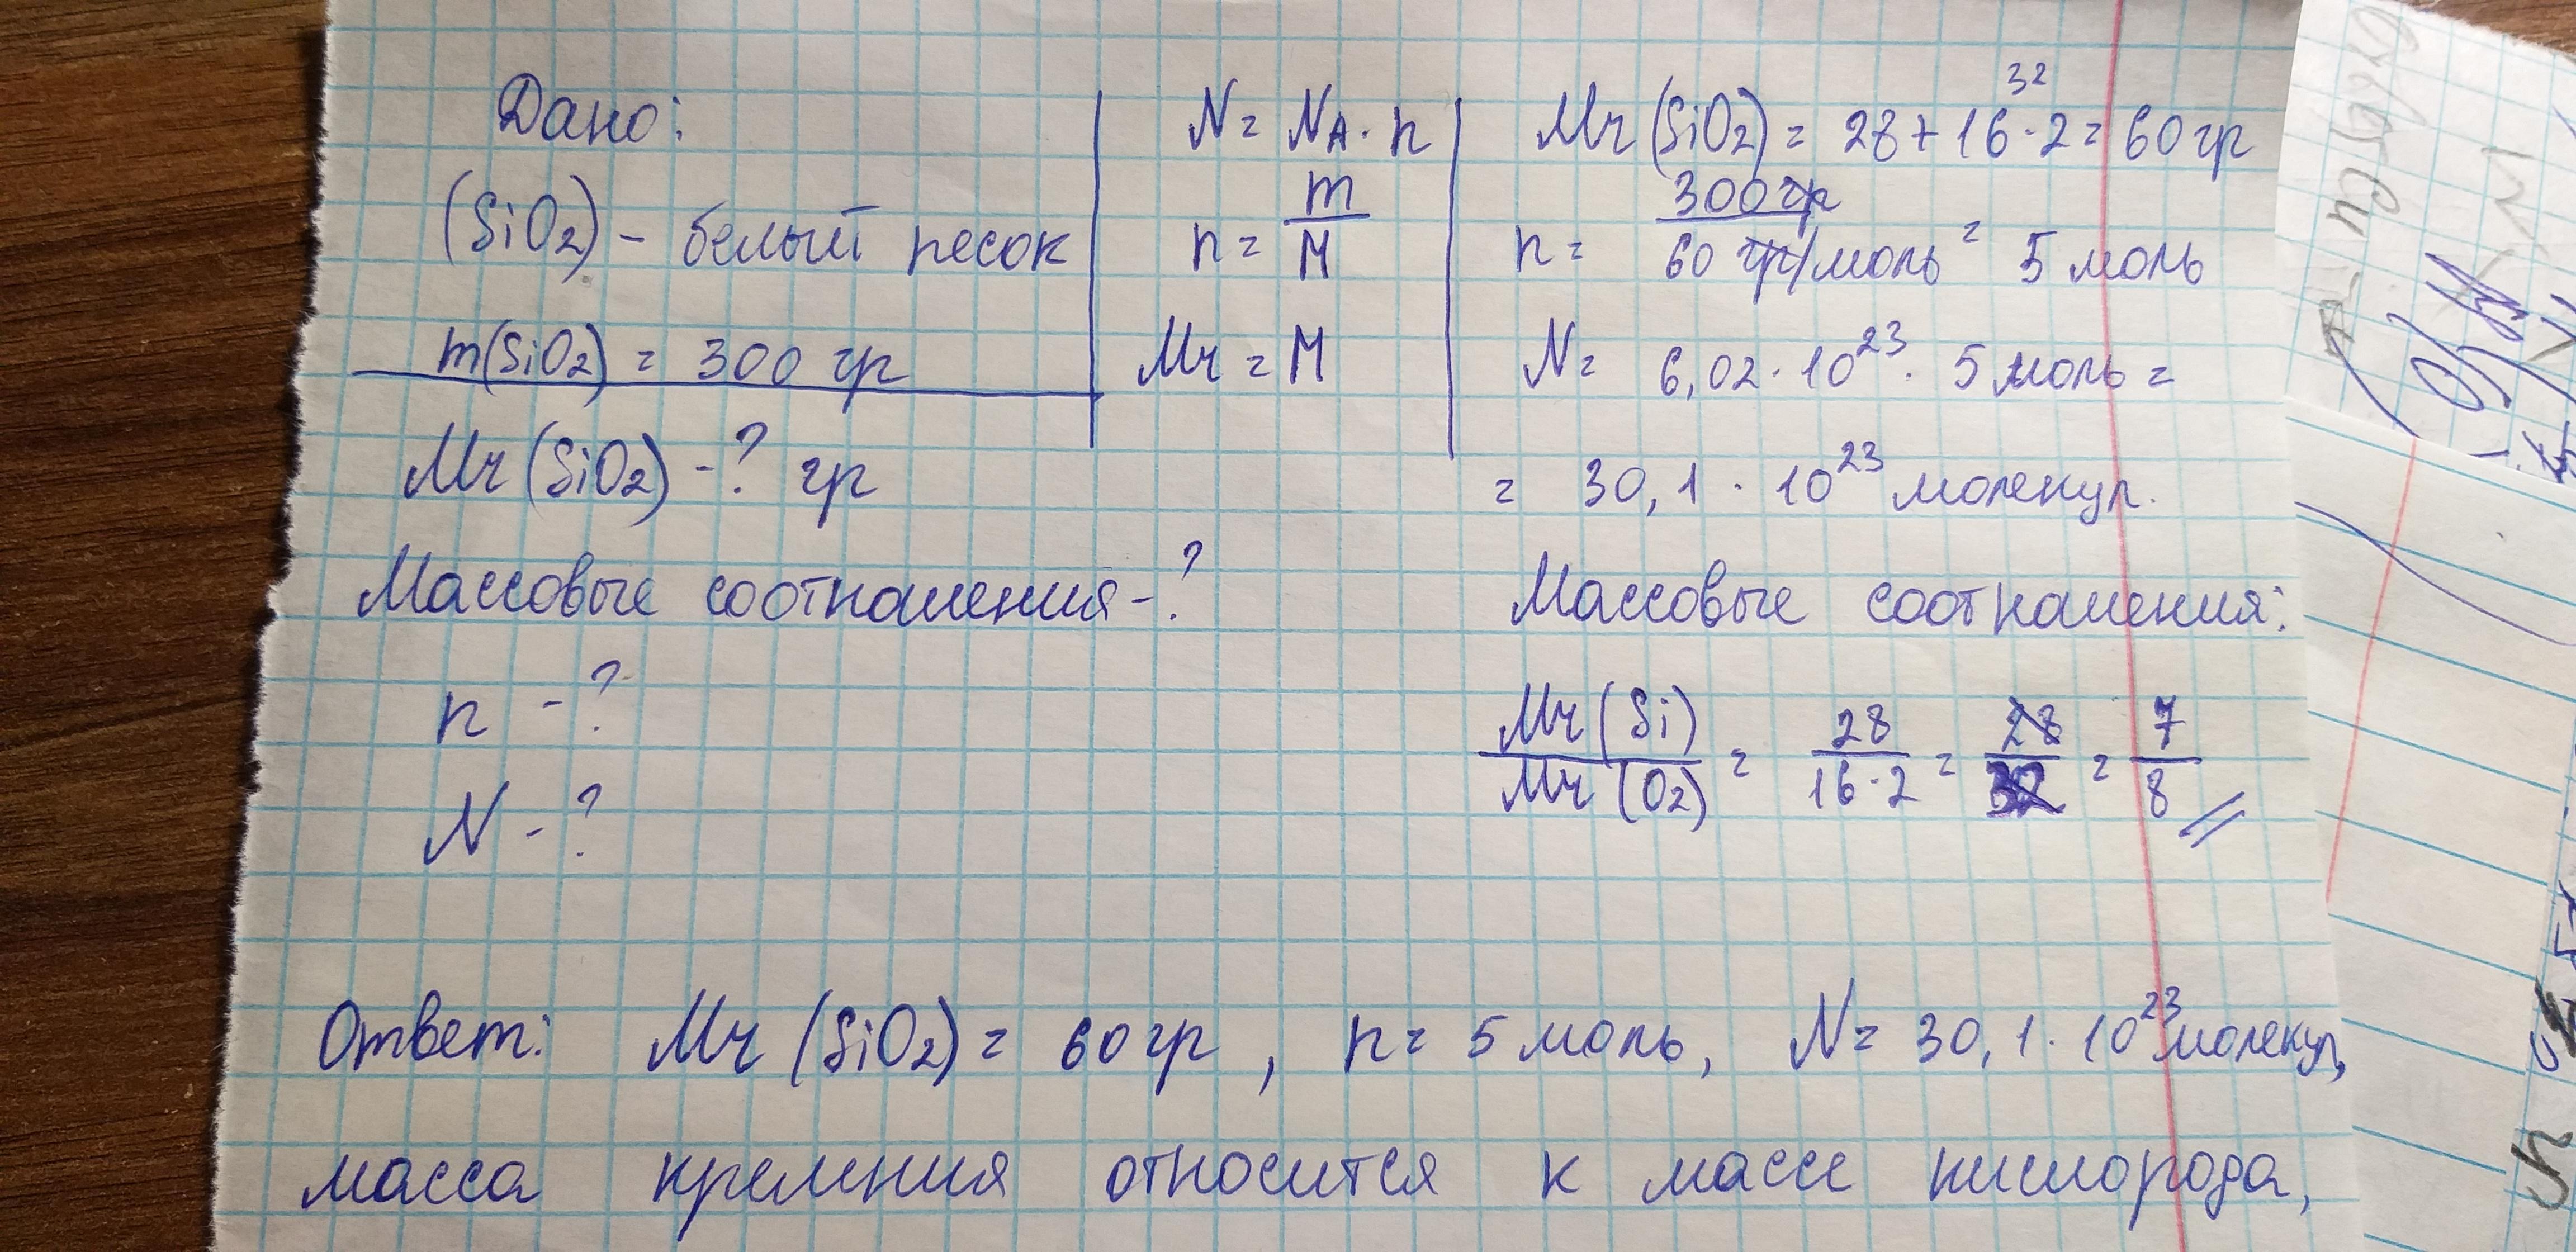 Дано:
(SiO₂) - белый песок
m(SiO₂) = 300 гр
Mr (SiO₂) - ? гр
Массовые соотношения - ?
n - ?
N - ?
N = NA · n
n = m/M
Mr = M
32
Mr (SiO₂) = 28 + 16 · 2 = 60 гр
n = 300 гр / 60 гр/моль = 5 моль
N = 6,02 · 10²³ · 5 моль =
= 30,1 · 10²³ молекул.
Массовые соотношения:
Mr (Si) / Mr (O₂) = 28 / 16 · 2 = 28 / 32 = 7 / 8
Ответ: Mr (SiO₂) = 60 гр, n = 5 моль, N = 30,1 · 10²³ молекул,
масса кремния относится к массе кислорода,